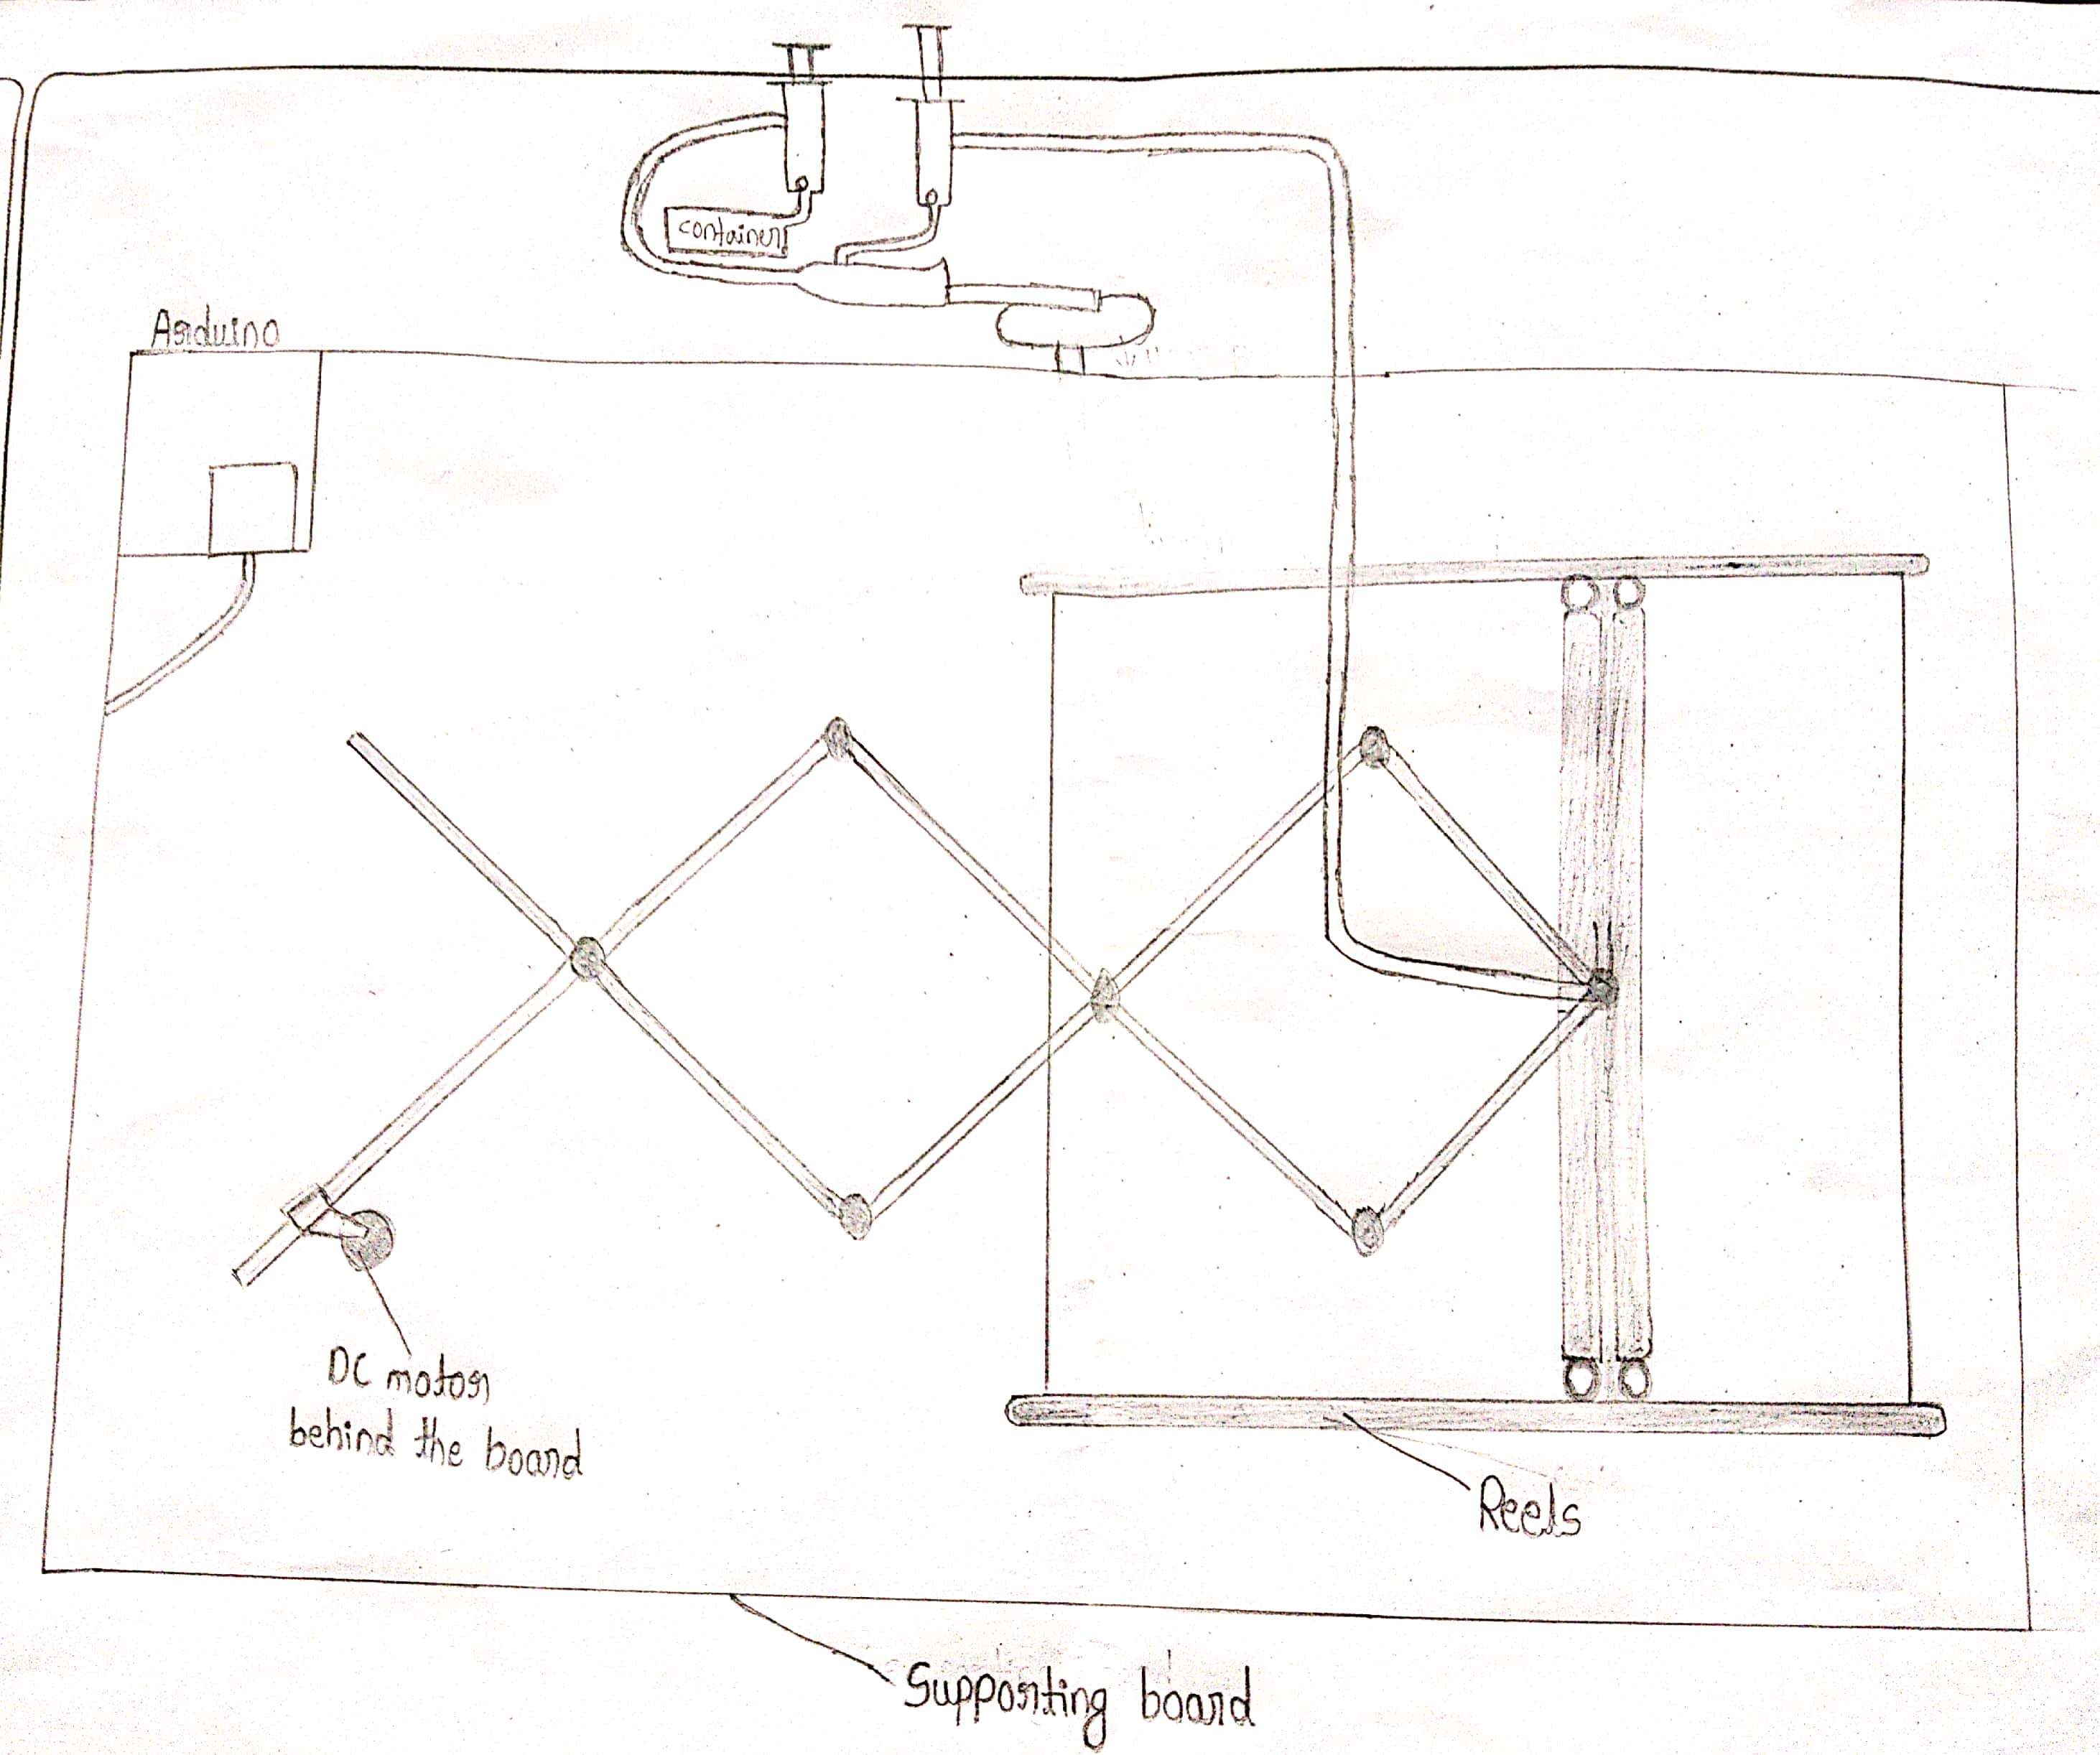 container
Arduino
DC motor
behind the board
Reels
Supporting board